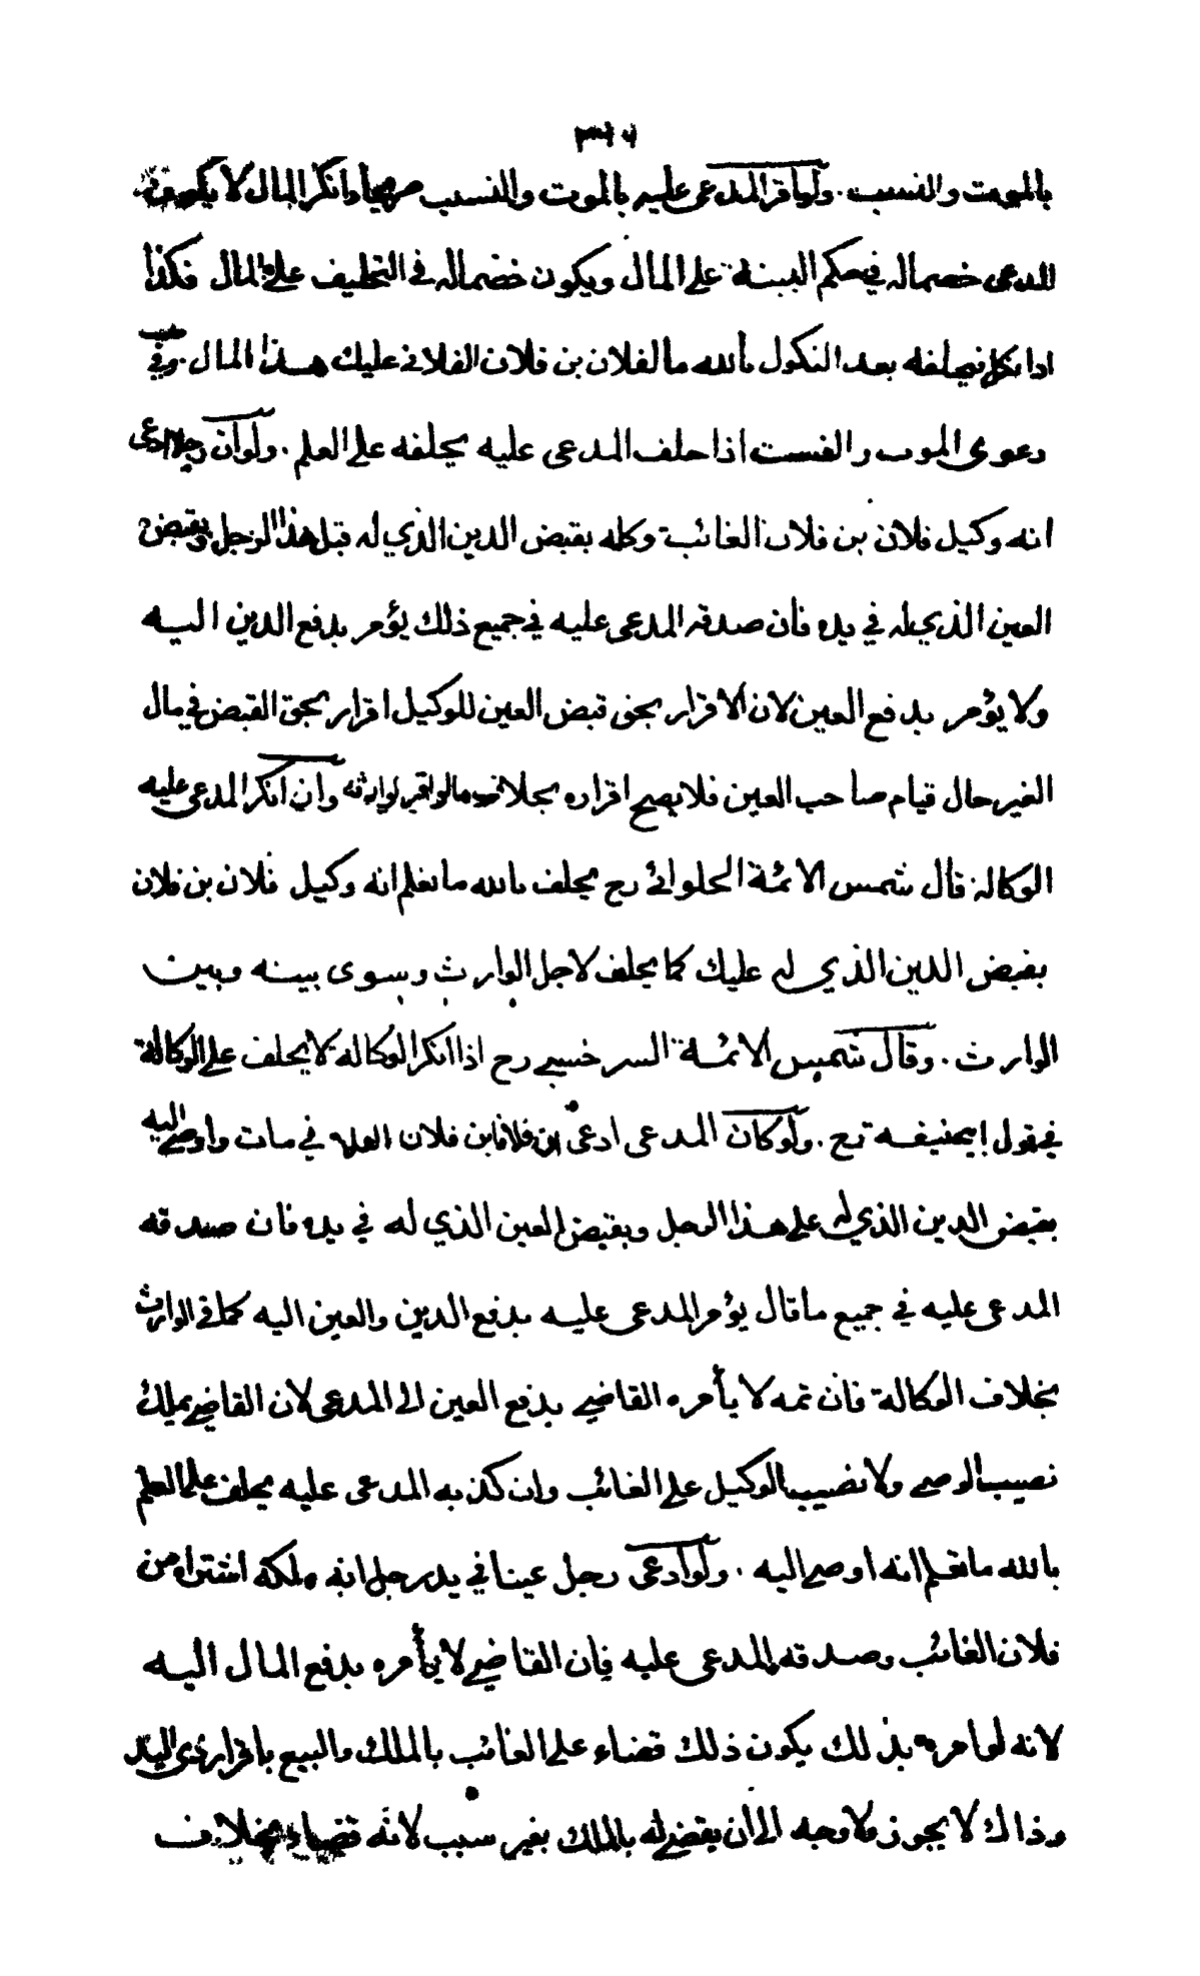 بالموت والنسب . ولو اقر المدعى عليه بالموت والنسب صريحا وانكر المال لا يكون
المدعى خصما له في حكم البينة على المال ويكون خصما له في التحليف على المال فكذا
اذا نكل فيحلفه بعد النكول بالله ما لفلان بن فلان الفلاني عليك هذا المال . وفي
دعوى الموت والنسب اذا حلف المدعى عليه يحلفه على العلم . ولو ان رجلا ادعى
انه وكيل فلان بن فلان الغائب وكله بقبض الدين الذي له قبل هذا الرجل وبقبض
العين الذي له في يده فان صدقه المدعى عليه في جميع ذلك يؤمر بدفع الدين اليه
ولا يؤمر بدفع العين لان الاقرار بحق قبض العين للوكيل اقرار بحق القبض في مال
الغير حال قيام صاحب العين فلا يصح اقراره بخلاف ما لو اقر لوارثه وان انكر المدعى عليه
الوكالة قال شمس الائمة الحلوائي رح يحلف بالله ما نعلم انه وكيل فلان بن فلان
بقبض الدين الذي له عليك كما يحلف لاجل الوارث وسوى بينه وبين
الوارث . وقال شمس الائمة السرخسي رح اذا انكر الوكالة لا يحلف على الوكالة
في قول ابيحنيفه رح . ولو كان المدعى ادعى ان فلانا بن فلان الفلاني مات واوصى اليه
بقبض الدين الذي له على هذا الرجل وبقبض العين الذي له في يده فان صدقه
المدعى عليه في جميع ما قال يؤمر المدعى عليه بدفع الدين والعين اليه كما في الوارث
بخلاف الوكالة فان ثمه لا يأمره القاضي بدفع العين الى المدعى لان القاضي يملك
نصيب الوصي ولا نصيب الوكيل على الغائب وان كذبه المدعى عليه يحلف على العلم
بالله ما نعلم انه اوصى اليه . ولو ادعى رجل عينا في يد رجل انه ملكه اشتراه من
فلان الغائب وصدقه المدعى عليه فان القاضي لا يأمره بدفع المال اليه
لانه لو امره بذلك يكون ذلك قضاء على الغائب بالملك والبيع باقرار ذي اليد
وذاك لا يجوز ولا وجه الى ان يقضي له بالملك بغير سبب لانه قضاء بخلاف